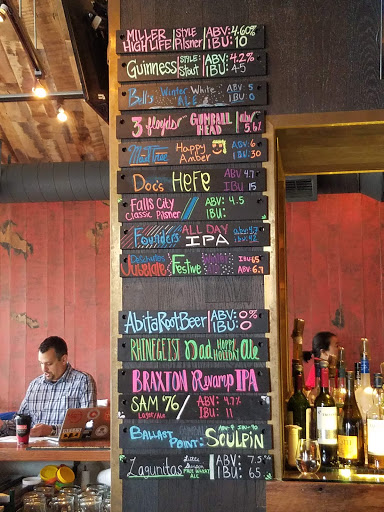 MILLER HIGH LIFE STYLE Pilsner ABV: 4.60% IBU: 10
Guinness STYLE: Stout ABV: 4.2% IBU: 45
Bell's Winter White ALE ABV: 5 IBU: 0
3 floyds GUMBALL HEAD abv 5.6%
MadTree Happy Amber ABV: 6 IBU: 30
Doc's HEFE ABV 4.7 IBU 15
FALLS CITY Classic Pilsner ABV: 4.5 IBU:
Founders ALL DAY IPA abv: 4.7 ibu: 42
DESCHUTES Jubelale Festive IBU: 65 ABV: 6.7
Abita Root Beer ABV: 0% IBU: 0
RHINEGEIST Dad HAPPY HOLIDAY Ale
BRAXTON Revamp IPA
SAM '76 Lager/Ale ABV: 4.7% IBU: 11
BALLAST POINT: SCULPIN
Lagunitas Little Sumpin PALE WHEAT ALE ABV: 7.5% IBU: 65